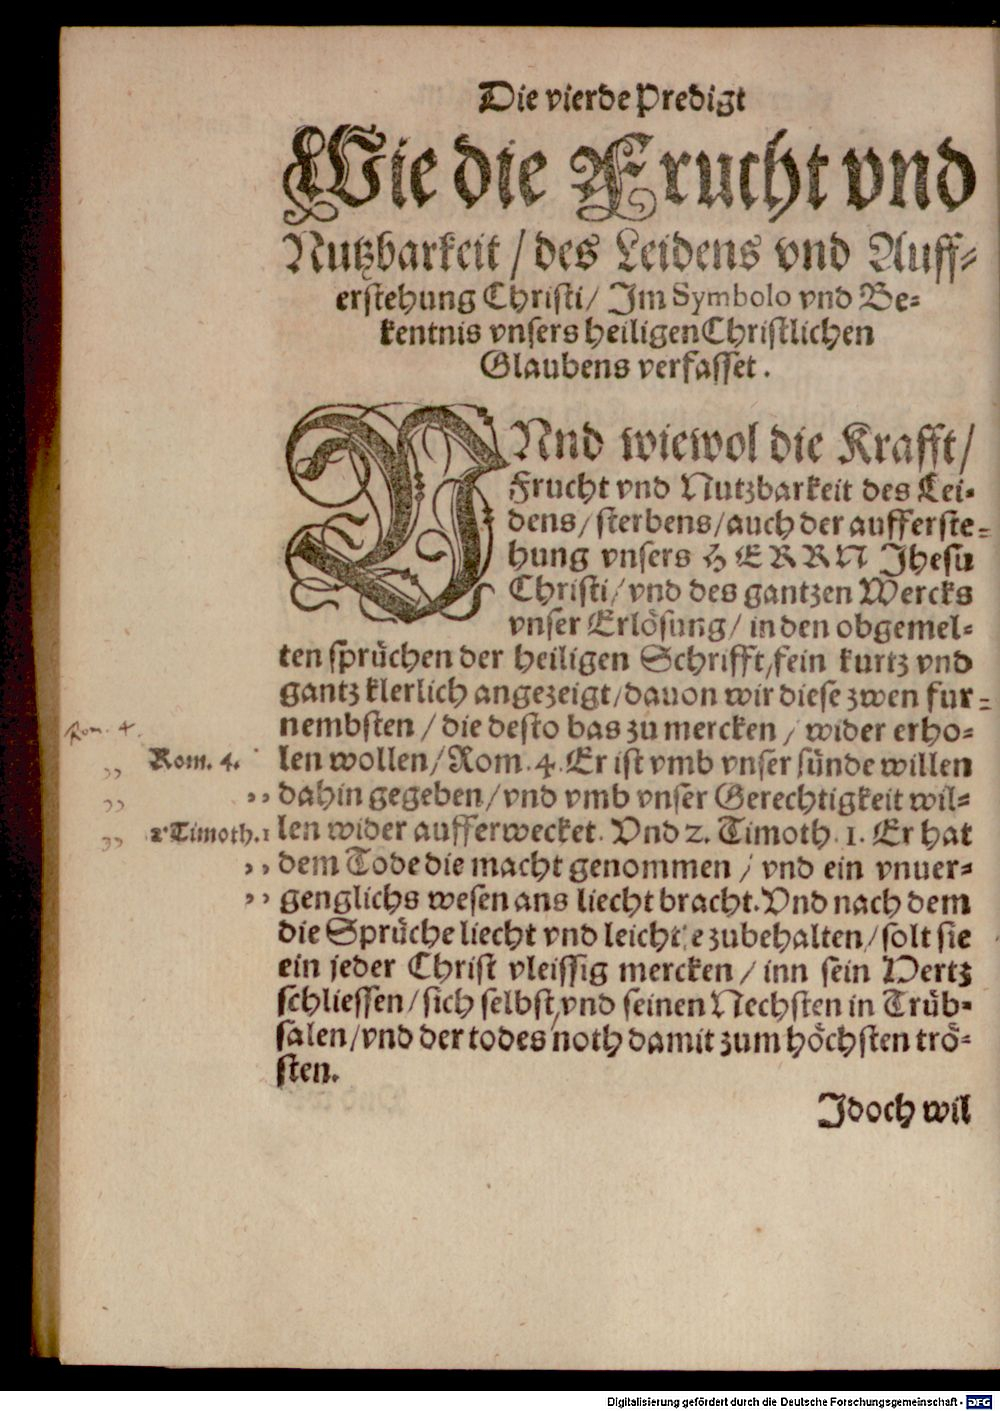 Die vierde Predigt
Wie die Frucht vnd
Nutzbarkeit / des Leidens vnd Auff-
erstehung Christi / Im Symbolo vnd Be-
kentnis vnsers heiligen Christlichen
Glaubens verfasset.
VNnd wiewol die Krafft /
Frucht vnd Nutzbarkeit des Lei-
dens / sterbens / auch der aufferste-
hung vnsers HERRN Jhesu
Christi / vnd des gantzen Wercks
vnser Erlösung / in den obgemel-
ten sprüchen der heiligen Schrifft / fein kurtz vnd
gantz klerlich angezeigt / dauon wir diese zwen fur-
nembsten / die desto bas zu mercken / wider erho-
Rom. 4.
Rom. 4. len wollen / Rom. 4. Er ist vmb vnser sünde willen
,, dahin gegeben / vnd vmb vnser Gerechtigkeit wil-
2 Timoth. 1 len wider aufferwecket. Vnd 2. Timoth. 1. Er hat
,, dem Tode die macht genommen / vnd ein vnuer-
,, genglichs wesen ans liecht bracht. Vnd nach dem
die Sprüche liecht vnd leichte zubehalten / solt sie
ein jeder Christ vleissig mercken / inn sein Hertz
schliessen / sich selbst / vnd seinen Nechsten in Trüb-
salen / vnd der todes noth damit zum höchsten trö-
sten.
Jdoch wil
Digitalisierung gefördert durch die Deutsche Forschungsgemeinschaft - DFG